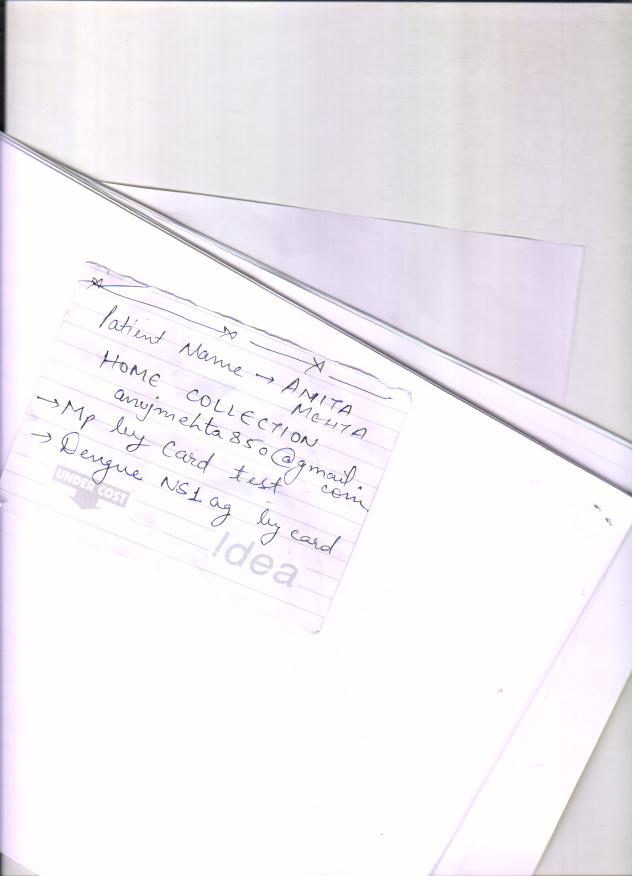 Patient Name → AMITA
MEHTA
HOME COLLECTION
anujmehta850@gmail.
com
→ Mp by Card test
→ Dengue NS1 ag by card
UNDER COST
!dea